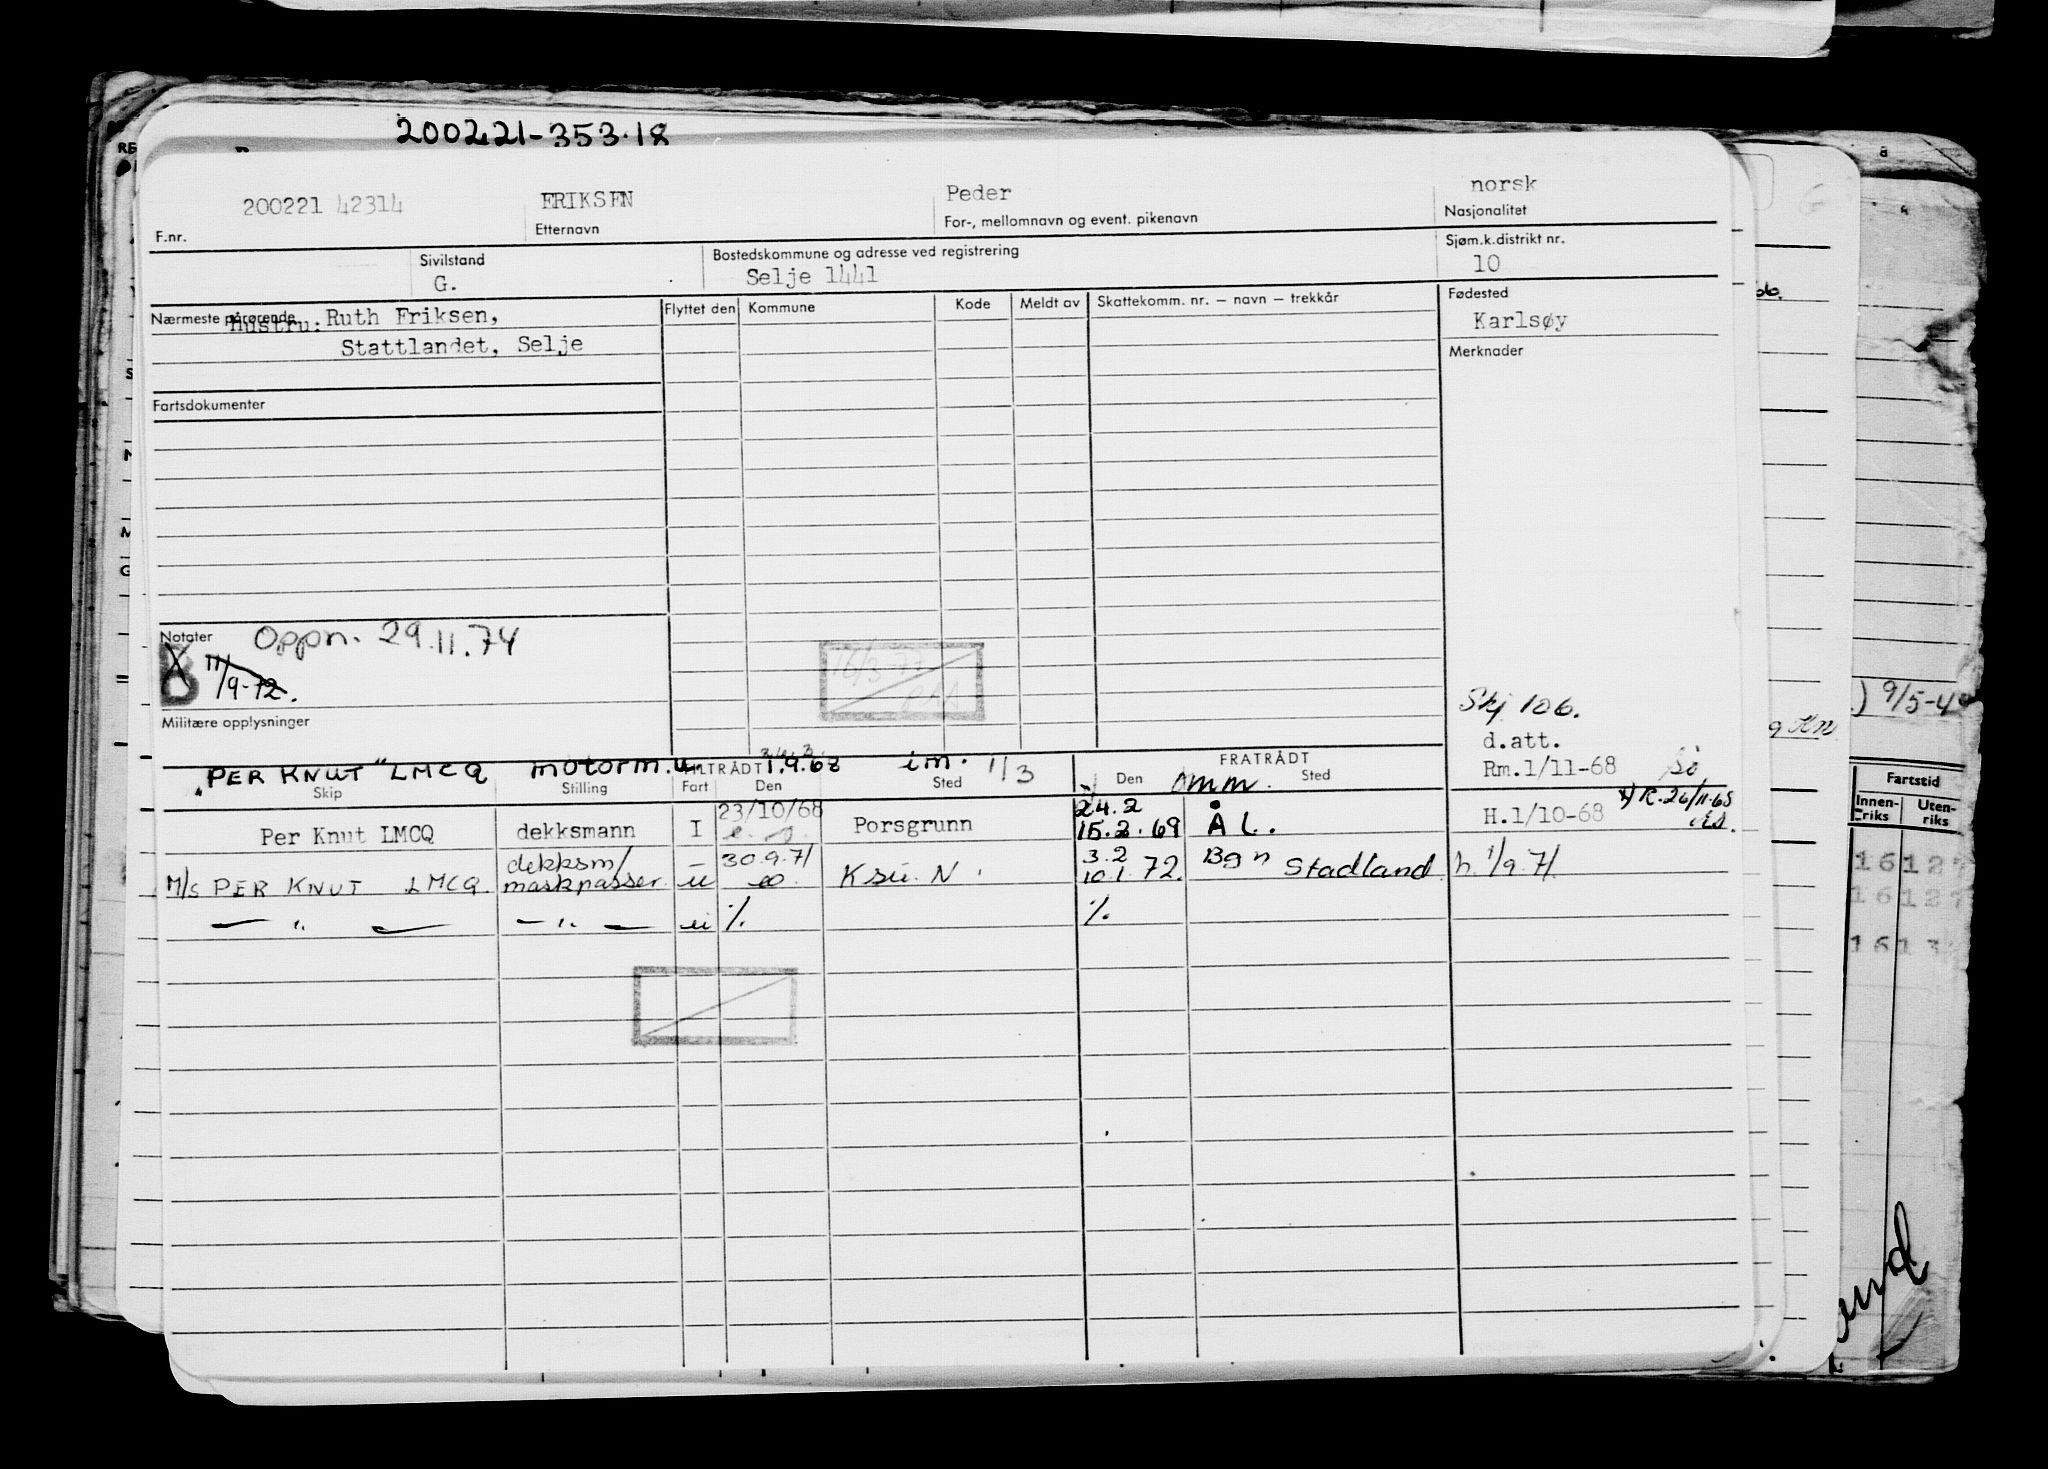 200221-353.18
200221 42314 ERIKSEN Peder norsk
F.nr. Etternavn For-, mellomnavn og event. pikenavn Nasjonalitet
Sivilstand Bostedskommune og adresse ved registrering Sjøm.k.distrikt nr.
G. Selje 1441 10
Nærmeste pårørende Flyttet den Kommune Kode Meldt av Skattekomm. nr. — navn — trekkår Fødested
Hustru: Ruth Eriksen, Karlsøy
Stattlandet, Selje Merknader
Fartsdokumenter
Notater Oppn. 29.11.74
B 11/9-72.
16/3-77
Militære opplysninger
Skj 106.
d.att.
Rm.1/11-68
"PER KNUT" LMCQ motorm. TILTRÅDT 1.9.68 i.m. 1/3 FRATRÅDT
Skip Stilling Fart Den Sted Den omm. Sted
23/10/68 24.2 R.26/11-68
Per Knut LMCQ dekksmann I Porsgrunn 15.2.69 ÅL. H.1/10-68
dekksm/ — 30.9.71 3.2
M/S PER KNUT LMCQ maskpasser u Ksu. N. 10.1.72. Bgn Stadland h. 1/9.71
— " — — " — u %. %.
) 9/5-4
Fartstid
Innen-riks Uten-riks
16127
16127
1613